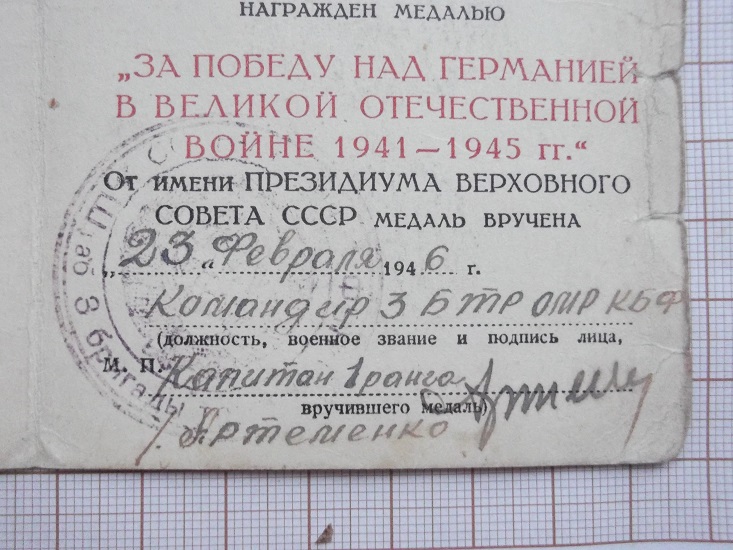 НАГРАЖДЕН МЕДАЛЬЮ
„ЗА ПОБЕДУ НАД ГЕРМАНИЕЙ
В ВЕЛИКОЙ ОТЕЧЕСТВЕННОЙ
ВОЙНЕ 1941—1945 гг.“
От имени ПРЕЗИДИУМА ВЕРХОВНОГО
СОВЕТА СССР МЕДАЛЬ ВРУЧЕНА
„23“ Февраля 1946 г.
Командир 3 БТР ОМР КБФ
(должность, военное звание и подпись лица,
М. П. Капитан 1 ранга
вручившего медаль)
/Артеменко/
Штаб 3 бригады